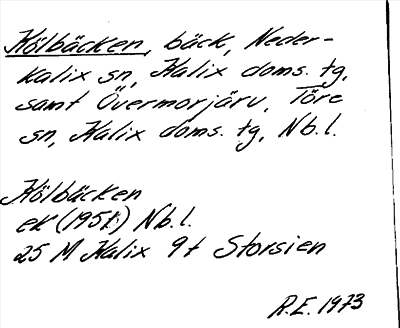 Kölbäcken, bäck, Neder-
kalix sn, Kalix doms. tg,
samt Övermorjärv, Töre
sn, Kalix doms. tg, Nb.l.
Kölbäcken
ek (1951) Nb.l.
25 M Kalix 9f Storsien
R.E. 1973